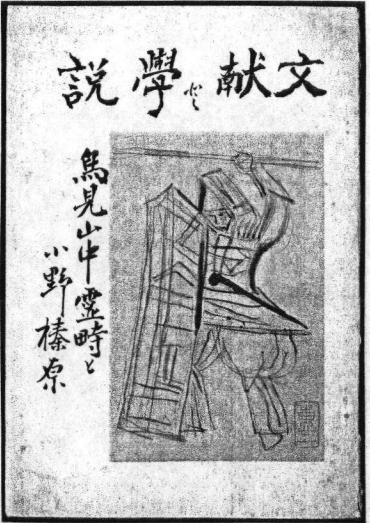 文献と學説
鳥見山中靈畤と
小野榛原